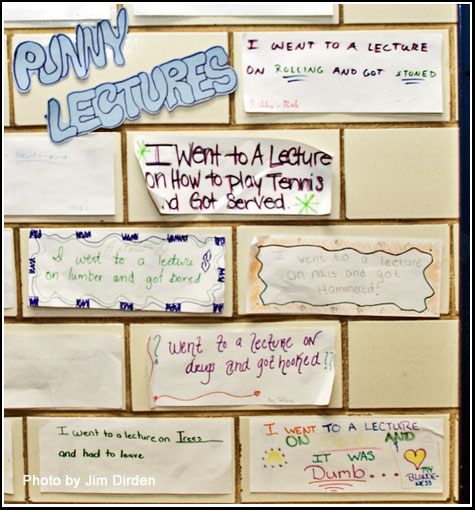 PUNNY
LECTURES
I WENT TO A LECTURE
ON ROLLING AND GOT STONED
I WENT TO A LECTURE
ON HOW TO PLAY TENNIS
.d GOT SERVED.
I went to a lecture
on lumber and got bored
I went to a lecture
on nails and got
Hammered!
I went to a lecture on
drugs and got hooked!!
I went to a lecture on Trees
and had to leave
I WENT TO A LECTURE
ON AND
IT WAS
Dumb...
MY
BLONDE-
NESS
Photo by Jim Dirden